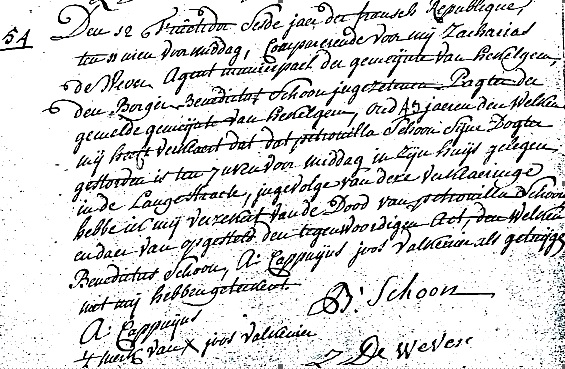 54
Den 12 Fructidor Sesde jaer der fransch Republique,
ten 11 uren voor middag, Comparerende voor mij Zacharias
de Wever Agent municipael der gemeijnte van Hekelgem,
den Borger Benedictus Schoon jngezetenen Pagter der
gemelde gemeijnte van Hekelgem, oud 47 jaeren den Welken
mij heeft verklaert dat dat petronilla Schoon Sijne Dogter
gestorven is ten 7 uren voor middag in zijn huijs gelegen
in de Langestraete, jngevolge van deze verklaeringe
hebbe ik mij verzekert van de Dood van petronilla Schoon
en daer van opgesteld den tegenwoordigen Act, den Welken
Benedictus Schoon, A: Cappuijns joos Valkenier als getuijgen
met mij hebben geteekent
B: Schoon
A: Cappuijns
t merk van X joos Valkenier
Z De Wever